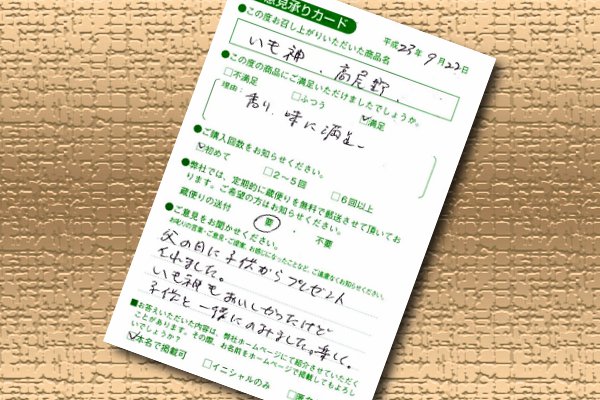 意見承りカード
平成23年9月22日
●この度お召し上がりいただいた商品名
いも神、高尾野、
●この度の商品にご満足いただけましたでしょうか。
□不満足 □ふつう ☑満足
理由:
香り、味に満足
●ご購入回数をお知らせください。
☑初めて □2～5回 □6回以上
●弊社では、定期的に蔵便りを無料で郵送させて頂いてお
ります。ご希望の方はお知らせください。
蔵便りの送付 要 ・ 不要
●ご意見をお聞かせください。
お叱りの言葉・ご意見・ご提案、お感じになったことなど、ご遠慮なくお知らせください。
父の日に子供からプレゼント
されました。
いも神もおいしかったけど
子供と一緒にのみました。楽しく。
■お答えいただいた内容は、弊社ホームページにて紹介させていただく
ことがあります。その際、お名前をホームページで掲載してもよろし
いでしょうか?
☑本名で掲載可 □イニシャルのみ